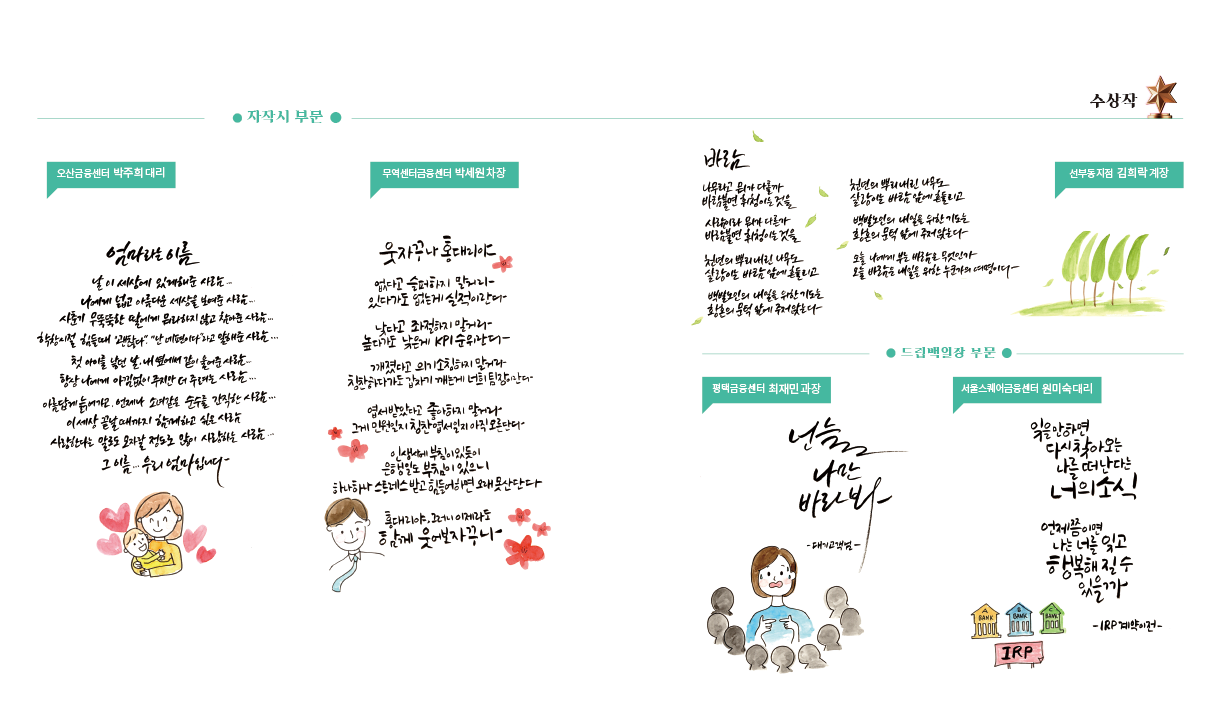 수상작
자작시 부문
오산금융센터 박주희 대리
엄마라는 이름
날 이 세상에 있게해준 사람...
나에게 넓고 아름다운 세상을 보여준 사람...
사춘기 우뚝뚝한 딸에게 뭐라하지 않고 참아준 사람...
학창시절 힘들때 "괜찮다" "난 네편이다"라고 말해준 사람...
첫 아이를 낳던 날, 내 옆에서 같이 울어준 사람...
항상 나에게 아낌없이 주지만 더 주려는 사람...
아름답게 늙어가고, 언제나 소녀같은 순수를 간직한 사람...
이 세상 끝날 때까지 함께하고 싶은 사람
사랑한다는 말로도 모자랄 정도로 많이 사랑하는 사람...
그 이름... 우리 엄마입니다-
무역센터금융센터 박세원 차장
웃자꾸나 홍대리야-
없다고 슬퍼하지 말거라-
있다가도 없는게 실적이란다-
낮다고 좌절하지 말거라-
높다가도 낮은게 KPI 순위란다-
깨졌다고 의기소침하지 말거라
칭찬하다가도 갑자기 깨는게 너희 팀장이란다-
엽서받았다고 좋아하지 말거라-
그게 민원일지 칭찬엽서일지 아직 모른단다-
인생사에 부침이 있듯이
은행일도 부침이 있으니
하나하나 스트레스 받고 힘들어하면 오래 못산단다-
홍대리야, 그러니 이제라도
함께 웃어보자꾸나-
바람
나무라고 뭐가 다를까
바람불면 휘청이는 것을
사람이라 뭐가 다른가
바람불면 휘청이는 것을
천년의 뿌리내린 나무도
살랑이는 바람 앞에 흔들리고
백발노인의 내일을 위한 기도는
황혼의 문턱 앞에 주저앉는다-
천년의 뿌리내린 나무도
살랑이는 바람 앞에 흔들리고
백발노인의 내일을 위한 기도는
황혼의 문턱 앞에 주저앉는다-
오늘 나에게 부는 바람은 무엇인가
오늘 바람은 내일을 위한 누군가의 여명이다-
선부동지점 김희락 계장
드립백일장 부문
평택금융센터 최재민 과장
넌 늘
나만
바라봐-
-대기고객님-
서울스퀘어금융센터 원미숙 대리
잊을만하면
다시 찾아오는
나를 떠난다는
너의 소식
언제쯤이면
나는 너를 잊고
행복해 질 수
있을까
-IRP 계약이전-
A
BANK
B
BANK
C
BANK
IRP